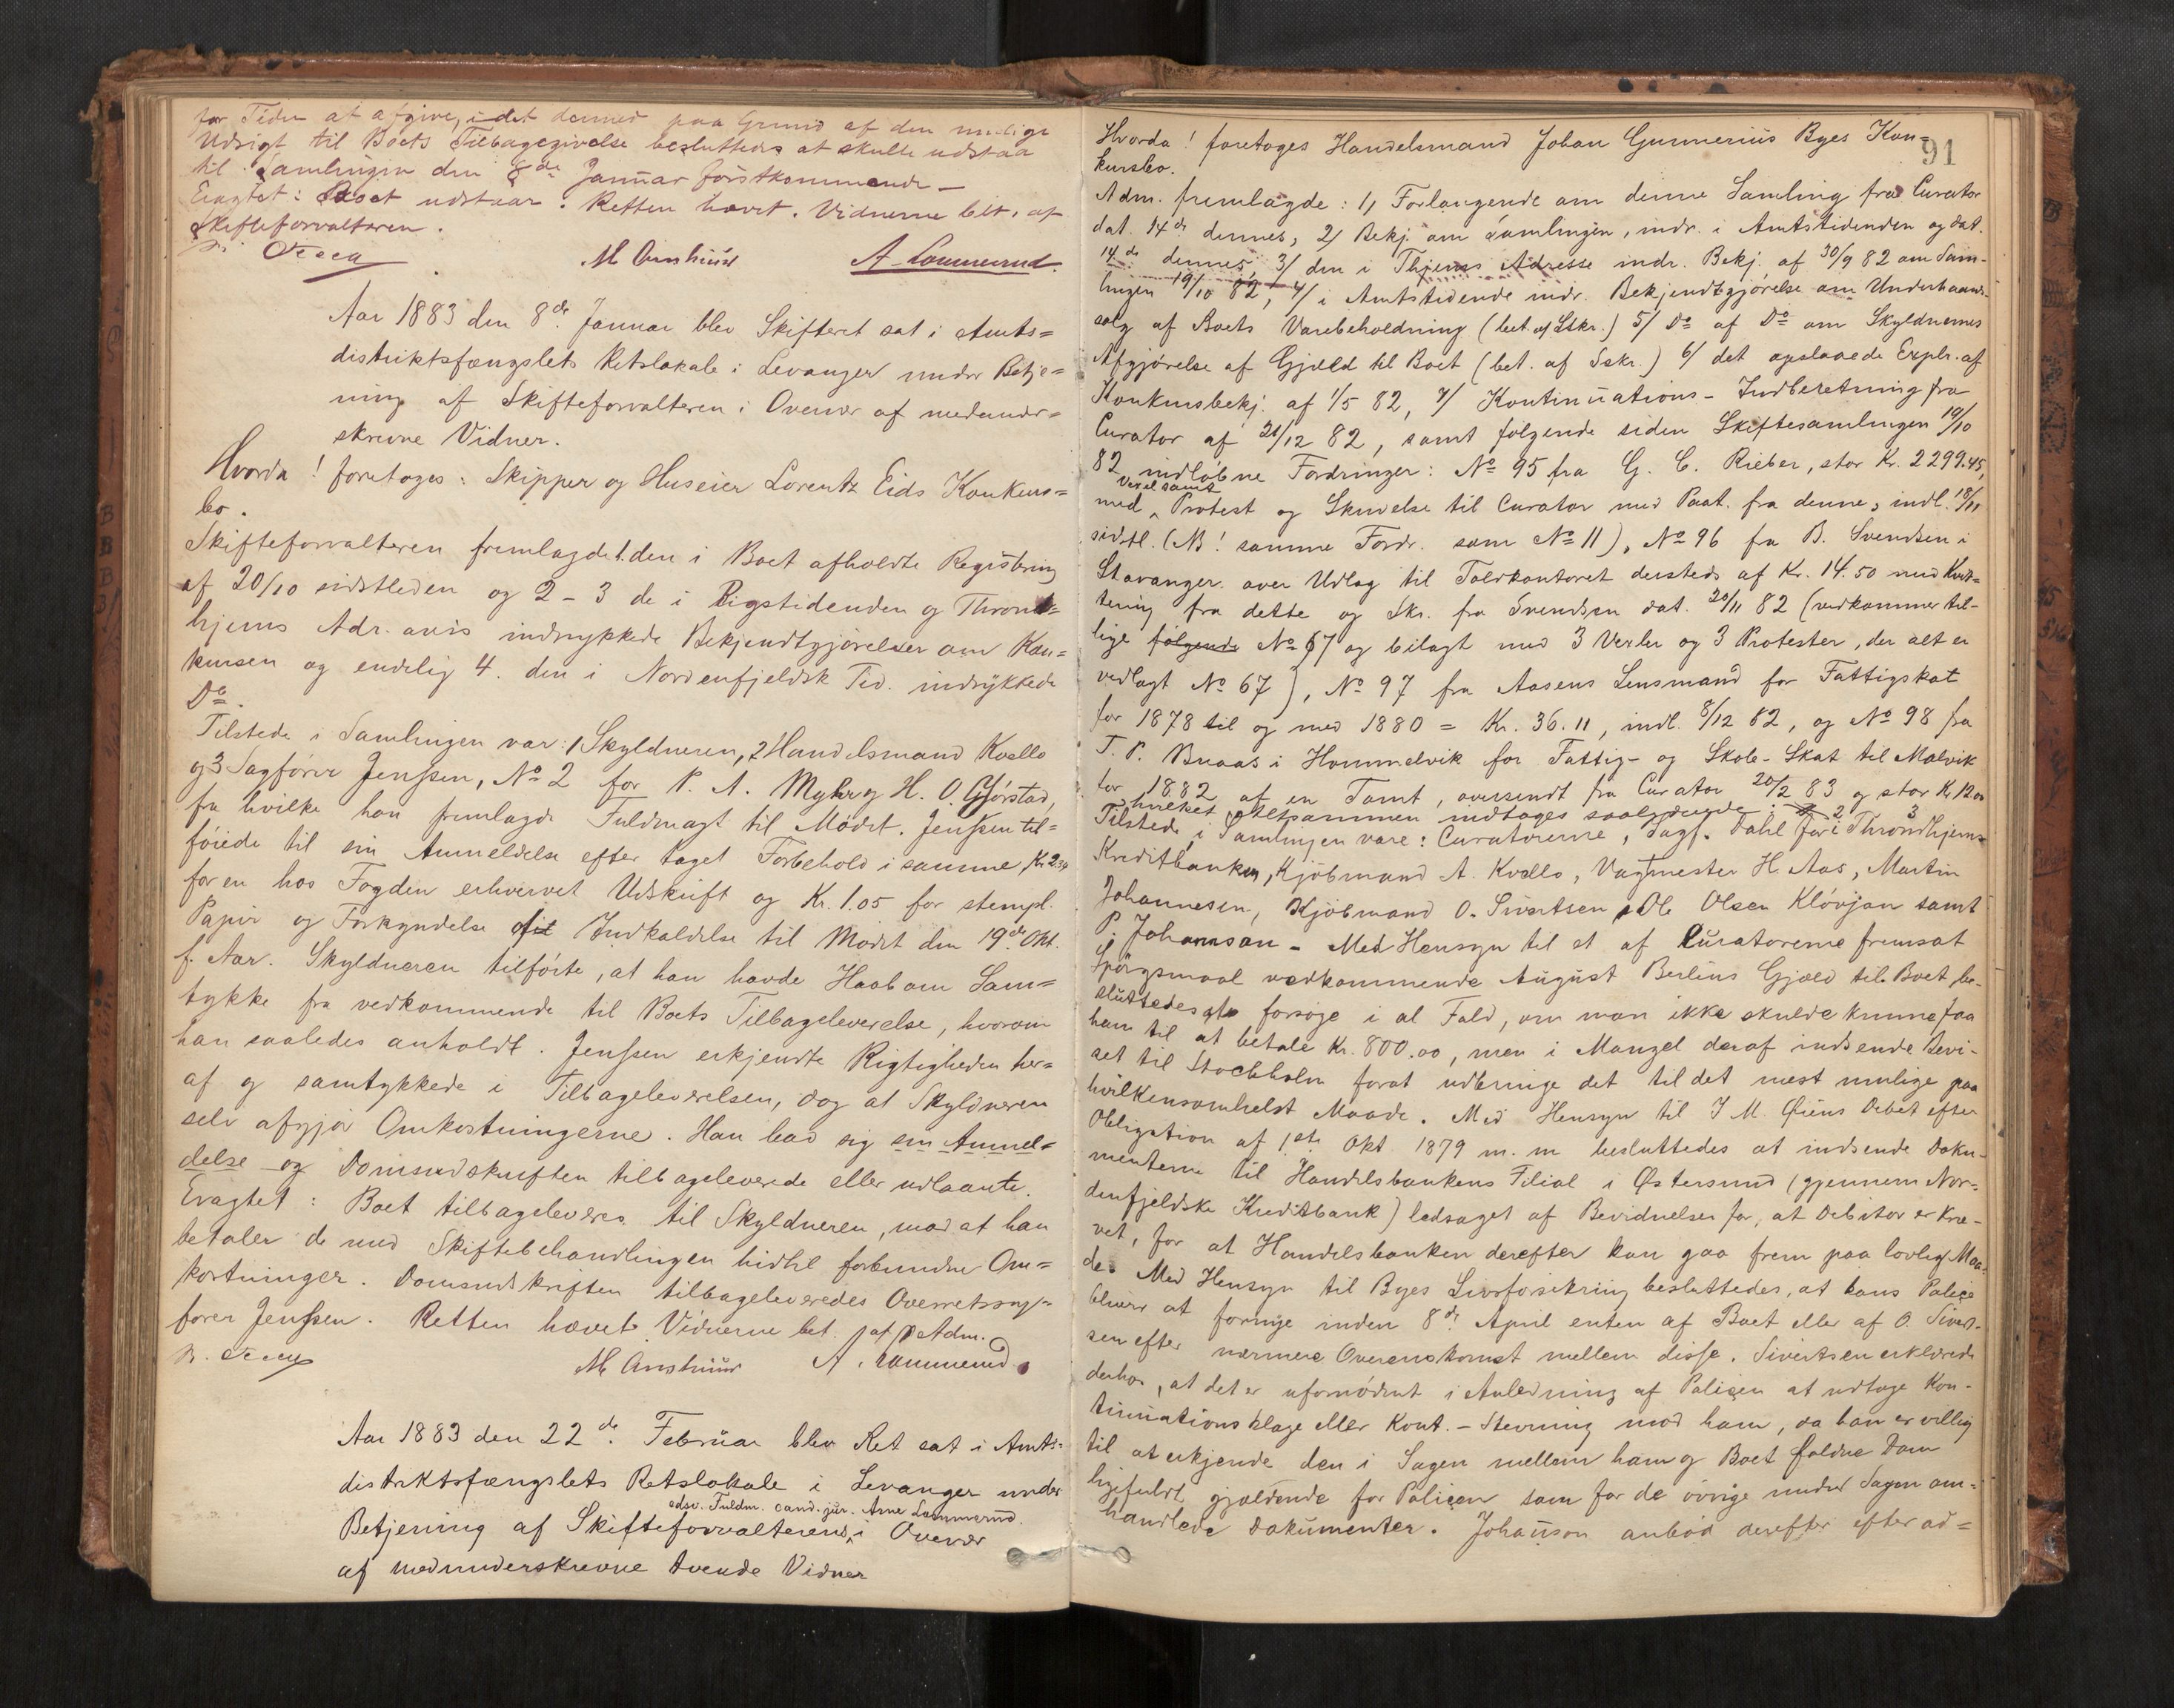 for Tiden at afgive, idet dermed paa Grund af den mulige
Udsigt til Boets Tilbagegivelse besluttedes at skulle udstaa
til Samlingen den 8de Januar førstkommende —
Eragtet: Boet udstaar. Retten hævet. Vidnerne bet. af
Skifteforvalteren.
M Arnhuus A. Lommerud.
Aar 1883 den 8de Januar blev Skifteret sat i Amts=
distriktsfængslets Retslokale i Levanger under Betje=
ning af Skifteforvalteren i Overvær af medunder=
skrevne Vidner.
Hvorda! foretoges: Skipper og Huseier Lorentz Eids Konkurs=
bo.
Skifteforvalteren fremlagde 1. den i Boet afholdte Registering
af 20/10 sidstleden og 2 - 3 de i Rigstidenden og Thrond=
hjems Adr. avis indrykkede Bekjendtgjørelser om Kon=
kursen og endelig 4. den i Nordenfjeldsk Tid. indrykkede
Do.
Tilstede i Samlingen var: 1 Skyldneren, 2 Handelsmand Kvello
og 3 Sagfører Jenssen, No 2 for P. A. Myhr og H. O. Gjørstad,
fra hvilke han fremlagde Fuldmagt til Mødet. Jenssen til=
føiede til sin Anmeldelse efter taget Forbehold i samme, Kr 2.30
for en hos Fogden erhvervet Udskrift og Kr. 1.05 for stempl.
Papir og Forkyndelse af Indkaldelse til Mødet den 19de Okt.
f. Aar. Skyldneren tilførte, at han havde Haab om Sam=
tykke fra vedkommende til Boets Tilbageleverelse, hvorom
han saaledes anholdt. Jenssen erkjendte Rigtigheden her=
af og samtykkede i Tilbageleverelsen, dog at Skyldneren
selv afgjør Omkostningerne. Han bad sig sin Anmel=
delse og Domsudskriften tilbageleverede eller udlaante.
Eragtet: Boet tilbageleveres til Skyldneren, mod at han
betaler de med Skiftebehandlingen hidtil forbundne Om=
kostninger. Domsudskriften tilbageleveredes Overretssag=
fører Jenssen. Retten hævet. Vidnerne bet. af Adm.
M Arnhuus A. Lommerud.
Aar 1883 den 22de Februar blev Ret sat i Amts=
distriktsfængslets Retslokale i Levanger under
edsv. Fuldm. cand. jur. Arne Lommerud.
Betjening af Skifteforvalterens i Overvær
af medunderskrevne tvende Vidner
91
Hvorda! foretoges Handelsmand Johan Gunnerius Byes Kon=
kursbo.
Adm. fremlagde: 1/ Forlangende om denne Samling fra Curator
dat. 14de dennes, 2/ Bekj. om Samlingen, indr. i Amtstidenden og dat.
14de dennes, 3/ den i Thjems Adresse indr. Bekj. af 30/9 82 om Sam-
lingen 19/10 82, 4/ i Amtstidende indr. Bekjendtgjørelse om Underhaands-
salg af Boets Varebeholdning (bet. af Sskr.) 5/ Do af Do om Skyldnernes
Afgjørelse af Gjæld til Boet (bet. af Sskr.) 6/ det opslaaede Explr. af
Konkursbekj. af 1/5 82, 7/ Kontinuations-Indberetning fra
Curator af 21/12 82, samt følgende siden Skiftesamlingen 19/10
82 indløbne Fordringer: No 95 fra G. C. Rieber, stor Kr. 2299.45,
Vexel samt
med Protest og Skrivelse til Curator med Paat. fra denne, indl. 18/11
sidstl. (NB! samme Fordr. som No 11), No 96 fra B. Svendsen i
Stavanger over Udlæg til Toldkontoret dersteds af Kr. 14.50 med Kvit=
tering fra dette og Skr. fra Svendsen dat. 20/11 82 (vedkommer til-
lige følgende No 67 og bilagt med 3 Vexler og 3 Protester, der alt er
vedlagt No 67), No 97 fra Aasens Lensmand for Fattigskat
for 1878 til og med 1880 = Kr. 36.11, indl. 8/12 82, og No 98 fra
T. P. Braas i Hommelvik for Fattig- og Skole-Skat til Malvik
for 1882 af en Tomt, oversendt fra Curator 20/2 83 og stor Kr 12.00
hvilket altsammen indtages saalydende:
Tilstede i Samlingen vare: Curatorerne, Sagf. Dahl for Throndhjems
Kreditbank, Kjøbmand A. Kvello, Vagtmester H. Aas, Martin
Johannesen, Kjøbmand O. Sivertsen, Ole Olsen Kløvjan samt
P. Johannson - Med Hensyn til et af Curatorerne fremsat
Spørgsmaal vedkommende August Berlins Gjæld til Boet, be-
sluttedes at forsøge i al Fald, om man ikke skulde kunne faa
ham til at betale Kr. 800.00, men i Mangel deraf indsende Bevi-
set til Stockholm forat udbringe det til det mest mulige paa
hvilkensomhelst Maade. Med Hensyn til J. M. Øiens Debet efter
Obligation af 1ste Okt. 1879 m. m besluttedes at indsende Doku-
menterne til Handelsbankens Filial i Østersund (gjennem Nor-
denfjeldske Kreditbank) ledsaget af Bevidnelser for, at Debitor er kræ-
vet, for at Handelsbanken derefter kan gaa frem paa lovlig Maa-
de. Med Hensyn til Byes Livsforsikring besluttedes, at hans Police
bliver at fornye inden 8de April enten af Boet eller af O. Sivert-
sen efter nærmere Overenskomst mellem disse. Sivertsen erklærede
derhos, at det er ufornødent i Anledning af Policen at udtage Kon-
tinuationsklage eller Kont.-Stevning mod ham, da han er villig
til at erkjende den i Sagen mellem ham og Boet faldne Dom
ligefuldt gjældende for Policen som for de øvrige under Sagen om=
handlede Dokumenter. Johanson anbød derefter efter ad=